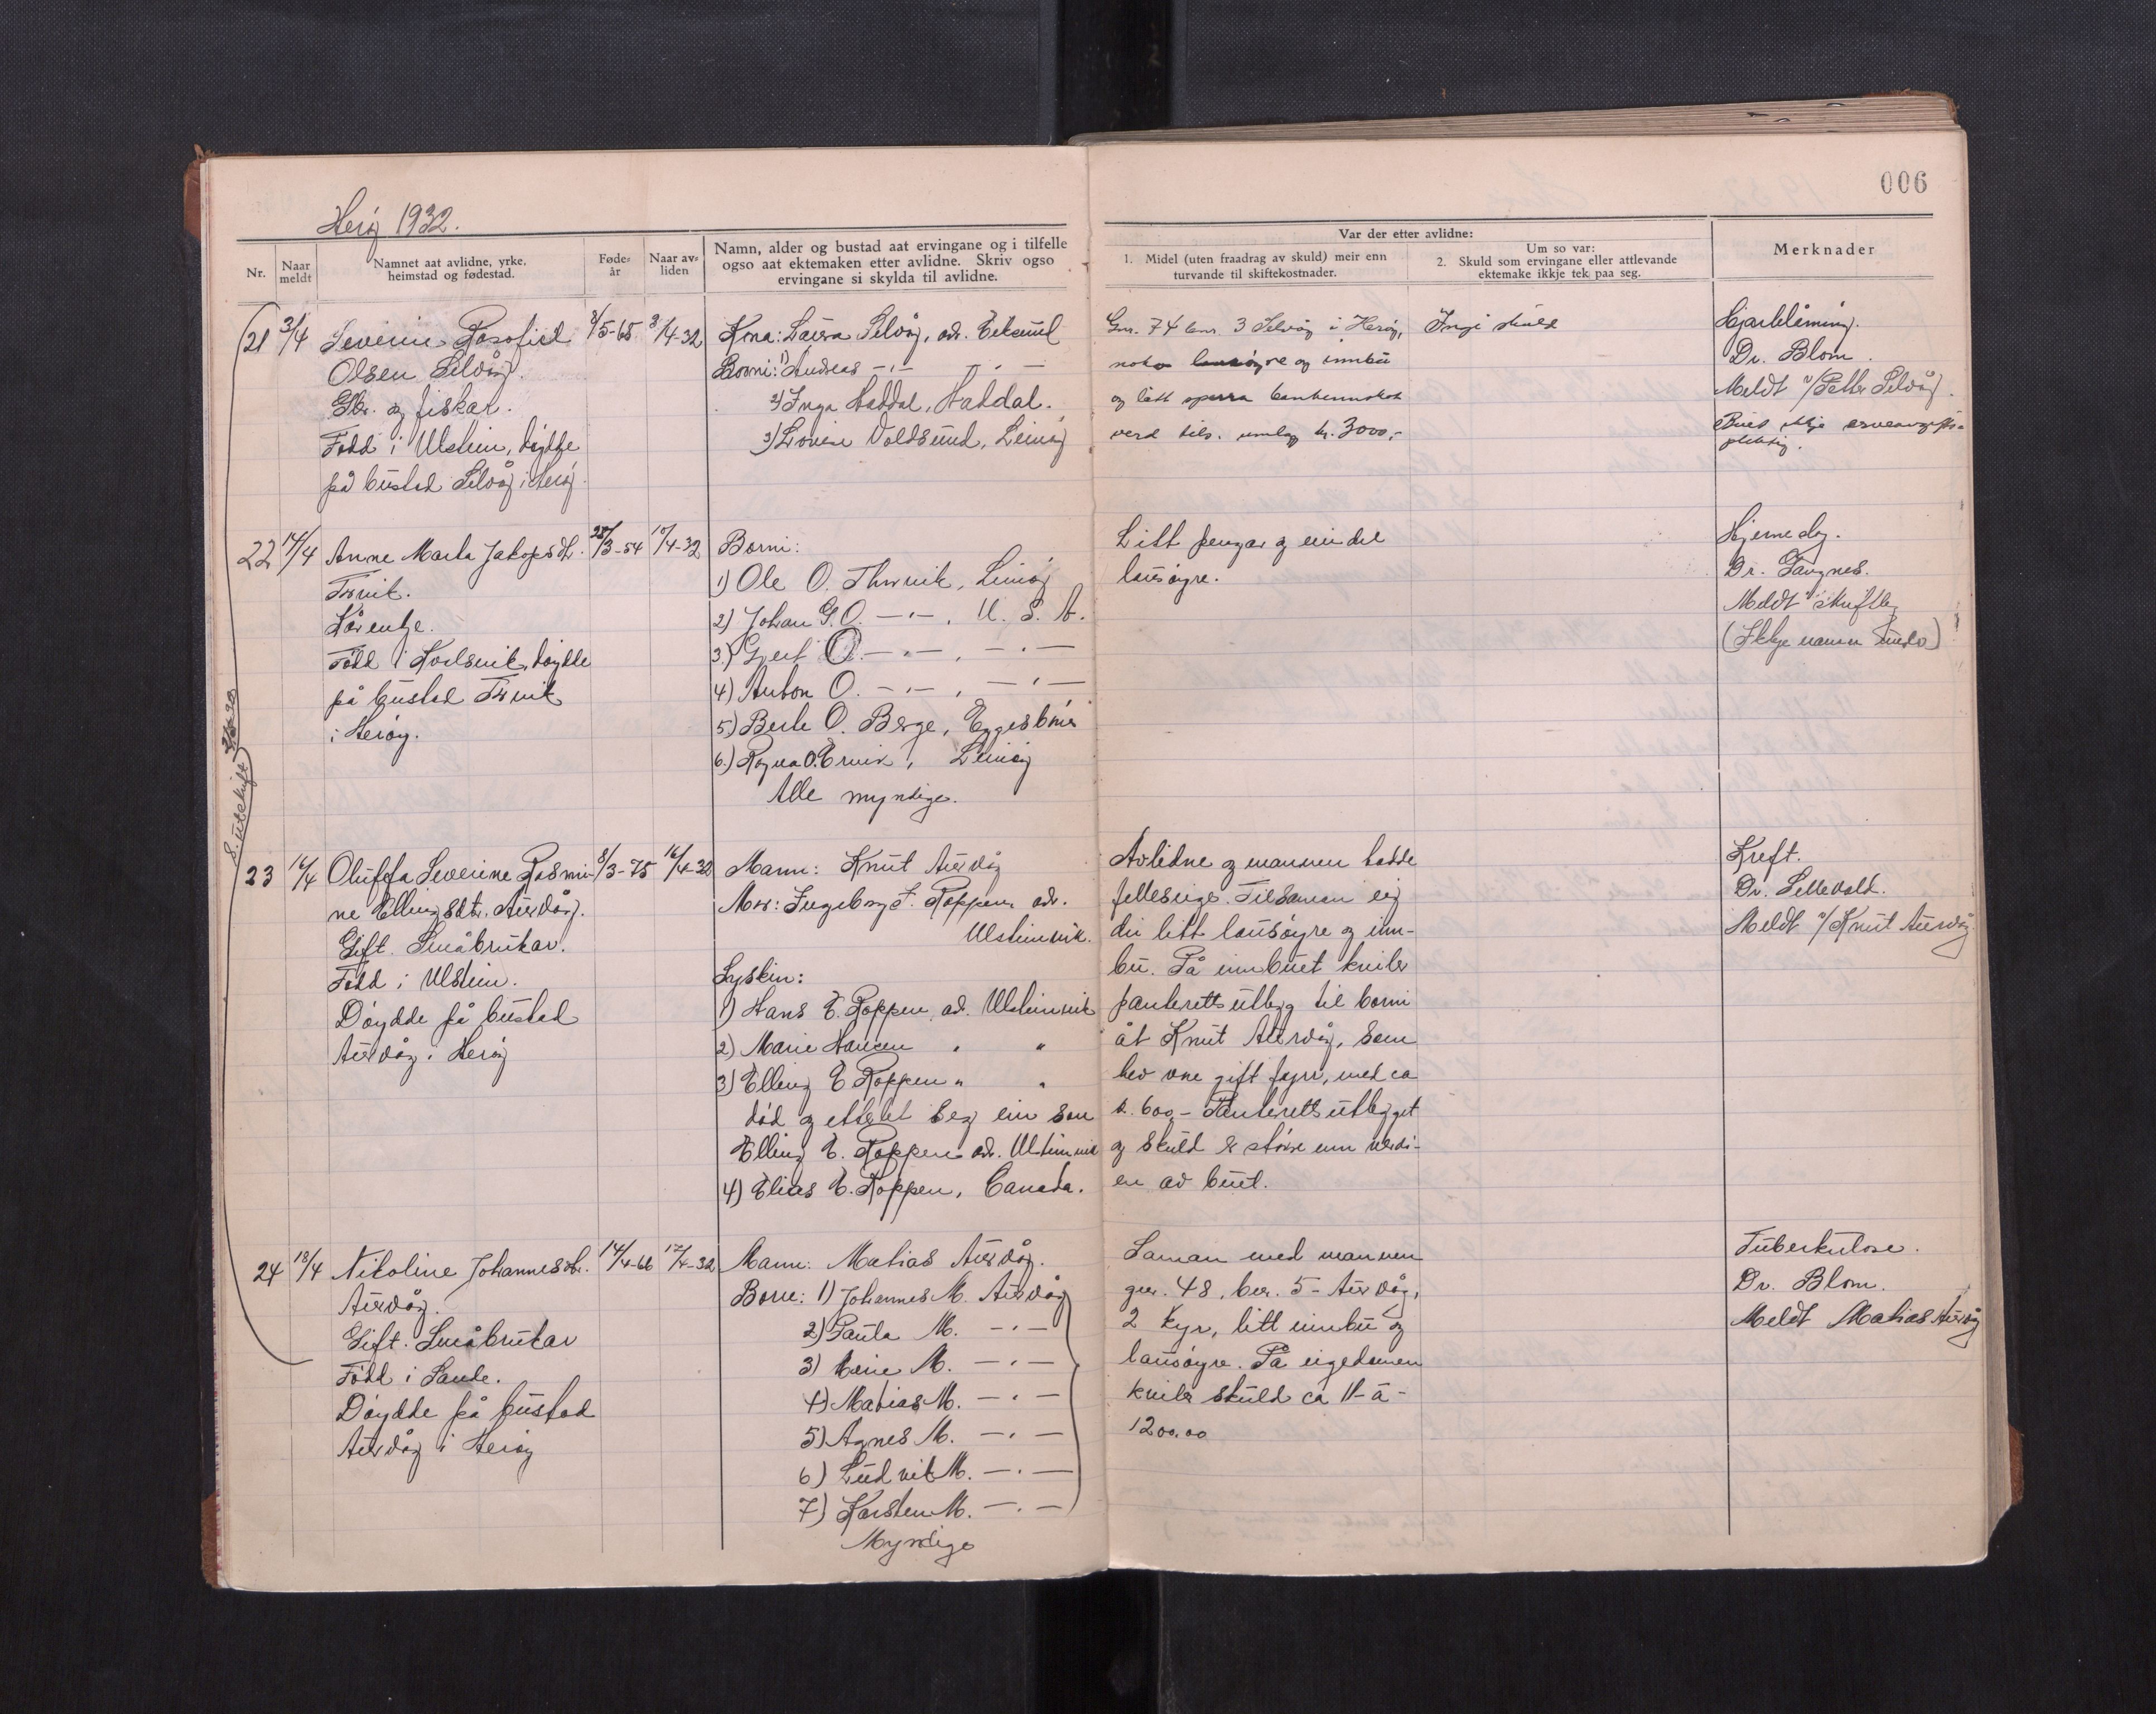 006
Herøy 1932.
Nr.
Naar meldt
Namnet aat avlidne, yrke, heimstad og fødestad.
Føde-år
Naar av-liden
Namn, alder og bustad aat ervingane og i tilfelle ogso aat ektemaken etter avlidne. Skriv ogso ervingane si skylda til avlidne.
Var der etter avlidne:
1. Midel (uten fraadrag av skuld) meir enn turvande til skiftekostnader.
Um so var:
2. Skuld som ervingane eller attlevande ektemake ikkje tek paa seg.
Merknader
21 3/4 Severin
Olsen Selvåg.
Gbr. og fiskar.
Född i Ulstein, döydde
på bustad Selvåg i Herøy.
3/5-65
3/4-32
Kona: Laura Selvåg, adr. Eiksund
Borni: 1) Andreas -"- -"-
2) Inga Haddal, Haddal.
3) Lovise Voldsund, Leinøy
Gnr. 74 bnr. 3 Selvåg i Herøy,
og innbu
og litt
verd tils. umlag kr. 3000,-
Ingi skuld
Hjartelåming.
Dr. Blom.
Meldt v/Petter Selvåg.
Buet ikkje arveavgifts-
pliktig.
22 14/4 Anne Marta Jakopsdt.
Tørvik.
Kårenkje.
Född i Kvalsvik, döydde
på bustad Tørvik
i Herøy.
28/3-54
10/4-32
Borni:
1) Ole O. Thorvik, Leinøy
2) Johan G.O. -"-, U. S. A.
3) Gjert O. -"-, -"-
4) Anton O. -"-, -"-
5) Berte O. Berge, Eggesbønes
6) Ragna O. Ervik, Leinøy
Alle myndige.
Litt pengar og ein del
lausøyre.
Hjerneslag.
Dr. Gaugnes.
Meldt skriftleg
(Ikkje namn under)
S. utskrift
23 16/4 Oluffa Severine Rasmi-
ne Ellingsdtr. Aurvåg.
Gift. Småbrukar.
Född i Ulstein.
Döydde på bustad
Aurvåg i Herøy
8/3-75
16/4-32
Mann: Knut Aurvåg
Mor: Ingeborg J. Roppen adr.
Ulsteinvik.
Syskin:
1) Hans E. Roppen, ad. Ulsteinvik
2) Marie Hansen " "
3) Elling E Roppen " "
död og etterlet seg ein son
Elling E. Roppen adr. Ulsteinvik
4) Elias E. Roppen, Canada.
Avlidne og mannen hadde
felleseige. Tilsaman eig
dei litt lausøyre og inn-
bu. På innbuet kviler
panterettsutlegg til borni
åt Knut Aurvåg, som
hev vore gift fyrr, med ca
kr. 600,- Panterettsutlegget
og skuld er større enn verdi-
en av buet.
Kreft.
Dr. Sellevold.
Meldt v/Knut Aurvåg
24 18/4 Nikoline Johannesdtr.
Aurvåg.
Gift. Småbrukar
Född i Sande.
Döydde på bustad
Aurvåg i Herøy
14/4-66
17/4-32
Mann: Matias Aurvåg.
Born: 1) Johannes M. Aurvåg
2) Paula M. -"-
3) Marie M. -"-
4) Matias M. -"-
5) Agnes M. -"-
6) Ludvik M. -"-
7) Karsten M. -"-
Myndige
Saman med mannen
gnr. 48, bnr. 5 - Aurvåg,
2 kyr, litt innbu og
lausøyre. På eigedomen
kviler skuld ca 11-à-
1200.00
Tuberkulose.
Dr. Blom.
Meldt Matias Aurvåg